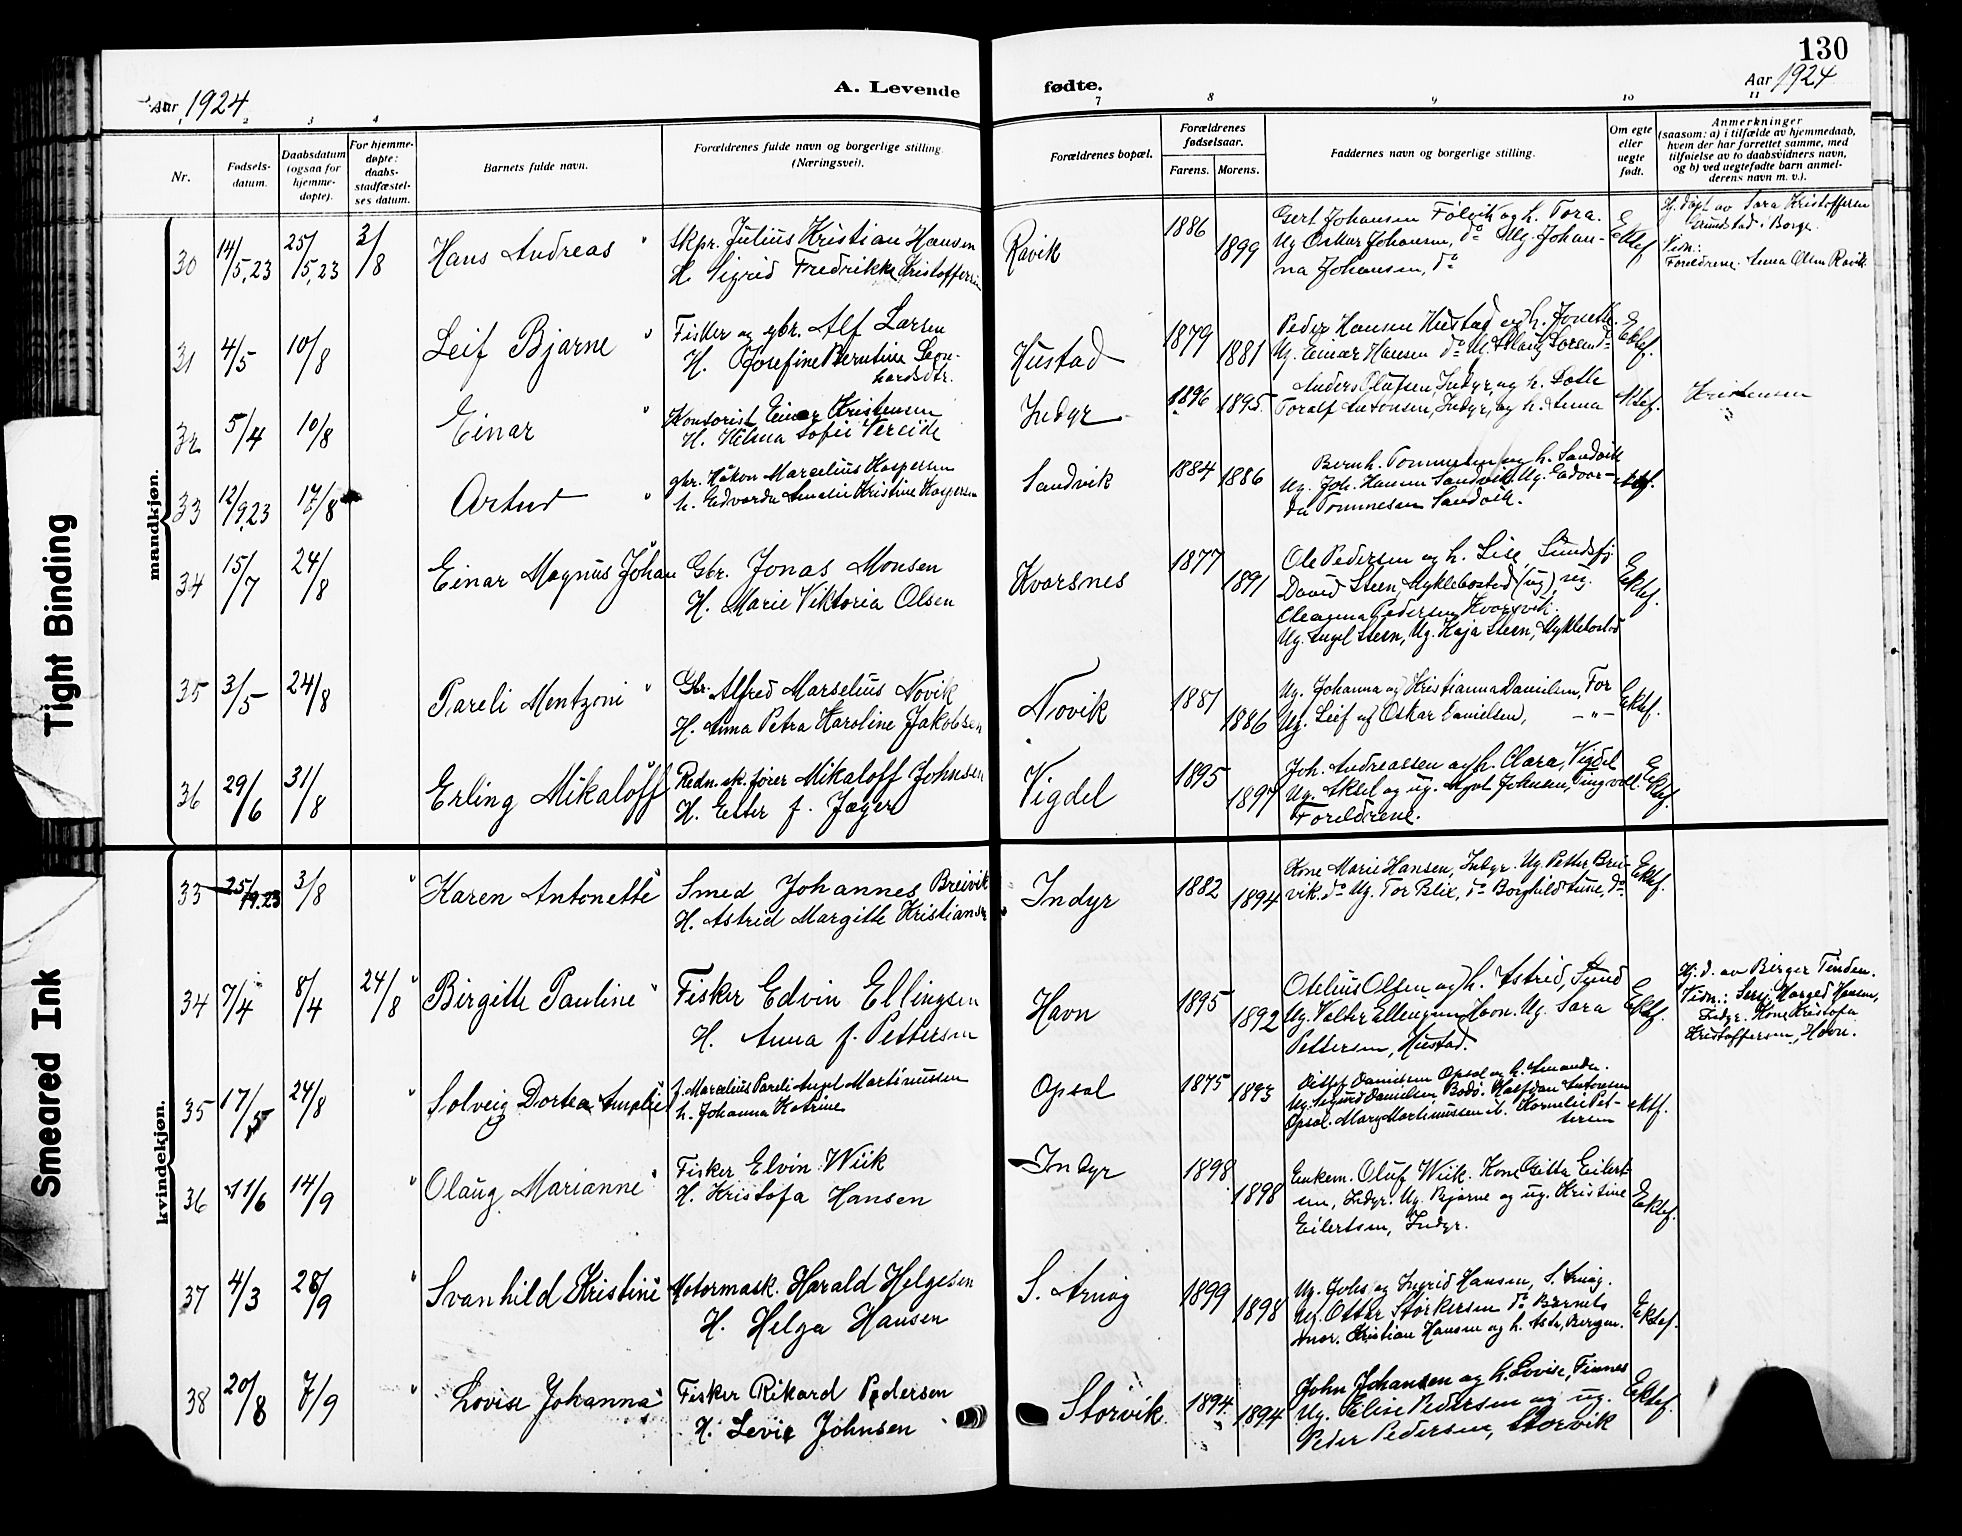 130
Aar 1924
A. Levende
fødte.
Aar 1924
2 3 4 7 8 9 10 11
Nr.
Fødsels-
datum.
Daabsdatum
(ogsaa for
hjemme-
døpte).
For hjemme-
døpte:
daabs-
stadfæstel-
ses datum.
Barnets fulde navn.
Forældrenes fulde navn og borgerlige stilling.
(Næringsvei).
Forældrenes bopæl.
Forældrenes
fødselsaar.
Farens. Morens.
Faddernes navn og borgerlige stilling.
Om egte
eller
uegte
født.
Anmerkninger
(saasom: a) i tilfælde av hjemmedaab,
hvem der har forrettet samme, med
tilføielse av to daabsvidners navn,
og b) ved uegtefødte barn anmel-
derens navn m. v.).
mandkjøn.
30 14/5,23 25/5,23 3/8 Hans Andreas
Skpr. Julius Kristian Hansen
H. Sigrid Fredrikke Kristoffersen
Ravik 1886 1899
Gert Johansen Følvik og h. Tora.
Ug. Oskar Johansen, do Ug. Johan-
na Johansen, do
Ektef.
Hj. døpt av Sara Kristoffersen
Grundstad i Borge
Vidn:
Foreldrene. Anna Olsen Ravik
31 4/5 10/8 Leif Bjarne
Fisker og gbr. Alf Larsen
H. Josefine Berntine Leon-
hardsdtr.
Hustad 1879 1881
Peder Hansen Hustad og h. Jonette.
Ug. Einar Hansen do
Ektef.
32 5/4 10/8 Einar
Kontorist Einar Kristensen
H. Helma Sofie Vereide
Indyr 1896 1895
Anders Olufsen, Indyr, og h. Lotte
Toralf Antonsen, Indyr, og h. Anna
Ektef.
Kristensen
33 12/9,23 17/8 Artur
gbr. Håkon Marcelius Kaspersen
h. Edvarda Amalie Kristine Kaspersen
Sandvik 1884 1886
Bernh. Tommesen og h. Sandvik
Ug. Joh. Hansen Sandvik. Ug. Edvar-
da Tommesen Sandvik.
ektef.
34 15/7 24/8 Einar Magnus Johan
Gbr. Jonas Monsen
H. Marie Viktoria Olsen
Kvarsnes 1877 1891
Ole Pedersen og h. Lise Sundsfj
David Steen, Myklebostad (ug), ug.
Pedersen Kvarsvik.
Ug. Engel Steen, Ug. Kaja Steen, Myklebostad
Ektef.
35 3/5 24/8 Pareli Mentzoni
Gbr. Alfred Marselius Novik
H. Anna Petra Karoline Jakobsen
Novik 1881 1886
Ug. Johanna og Kristianna Danielsen, For
Ug. Leif og Oskar Danielsen, — " —
Ektef.
36 29/6 31/8 Erling Mikaloff
Redn.sk.fører Mikaloff Johnsen
H. Ester f. Jæger
Vigdel 1895 1897
Joh. Andreassen og h. Clara, Vigdel
Ug. Aksel og ug. Johnsen, Tingvoll.
Foreldrene.
Ektef.
kvindekjøn.
33 25/9.23 3/8 Karen Antonette
Smed Johannes Breivik
H. Astrid Margitte Kristiansen
Indyr 1882 1894
Kone Marie Hansen, Indyr. Ug. Petter Brei-
vik. do Ug. Tor Blix, do Borghild Tune, do
Ektef.
34 7/4 8/4 24/8 Birgitte Pauline
Fisker Edvin Ellingsen
H. Anna f. Pettersen
Havn 1895 1892
Otelius Olsen og h. Astrid, Sund
Ug. Valter Ellingsen Havn. Ug. Sara
Pettersen, Hustad.
Ektef.
Hj. d. av Birger Tinden.
Vidn.: Serg. Hansen,
Indyr. Kone Kristofa
Kristoffersen, Havn.
35 17/5 24/8 Solveig Dortea Amalie
f. Marcelius Pareli Angel Martinussen
h. Johanna Katrine
Opsal 1875 1893
Ditlef Danielsen Opsal og h. Amanda.
Ug. Sigurd Danielsen Bodø. Halfdan Antonsen
Opsal. Mary Martinussen Kornelie Pet-
tersen
ektf.
36 11/6 14/9 Olaug Marianne
Fisker Elvin Wiik
H. Kristofa Hansen
Indyr 1898 1898
Enkem. Oluf Wiik. Kone Gitta Eilert-
sen, Indyr. Ug. Bjarne og ug. Kristine
Eilertsen, Indyr.
Ektef.
37 4/3 28/9 Svanhild Kristine
Motormask. Harald Helgesen
H. Helga Hansen
S. Arnøy 1899 1898
Ug. Johs og Ingrid Hansen, S. Arnøy.
Ug. Ottar Størkersen do Barnets
mor. Kristian Hansen og h. Asta, Bergen.
Ektef.
38 20/8 7/9 Lovise Johanna
Fisker Rikard Pedersen
H. Levie Johnsen
Storvik 1894 1894
John Johansen og h. Lovise, Finnes
Ug. Eline Pedersen og ug.
Peder Pedersen, Storvik
Ektef.
Tight Binding
Smeared Ink